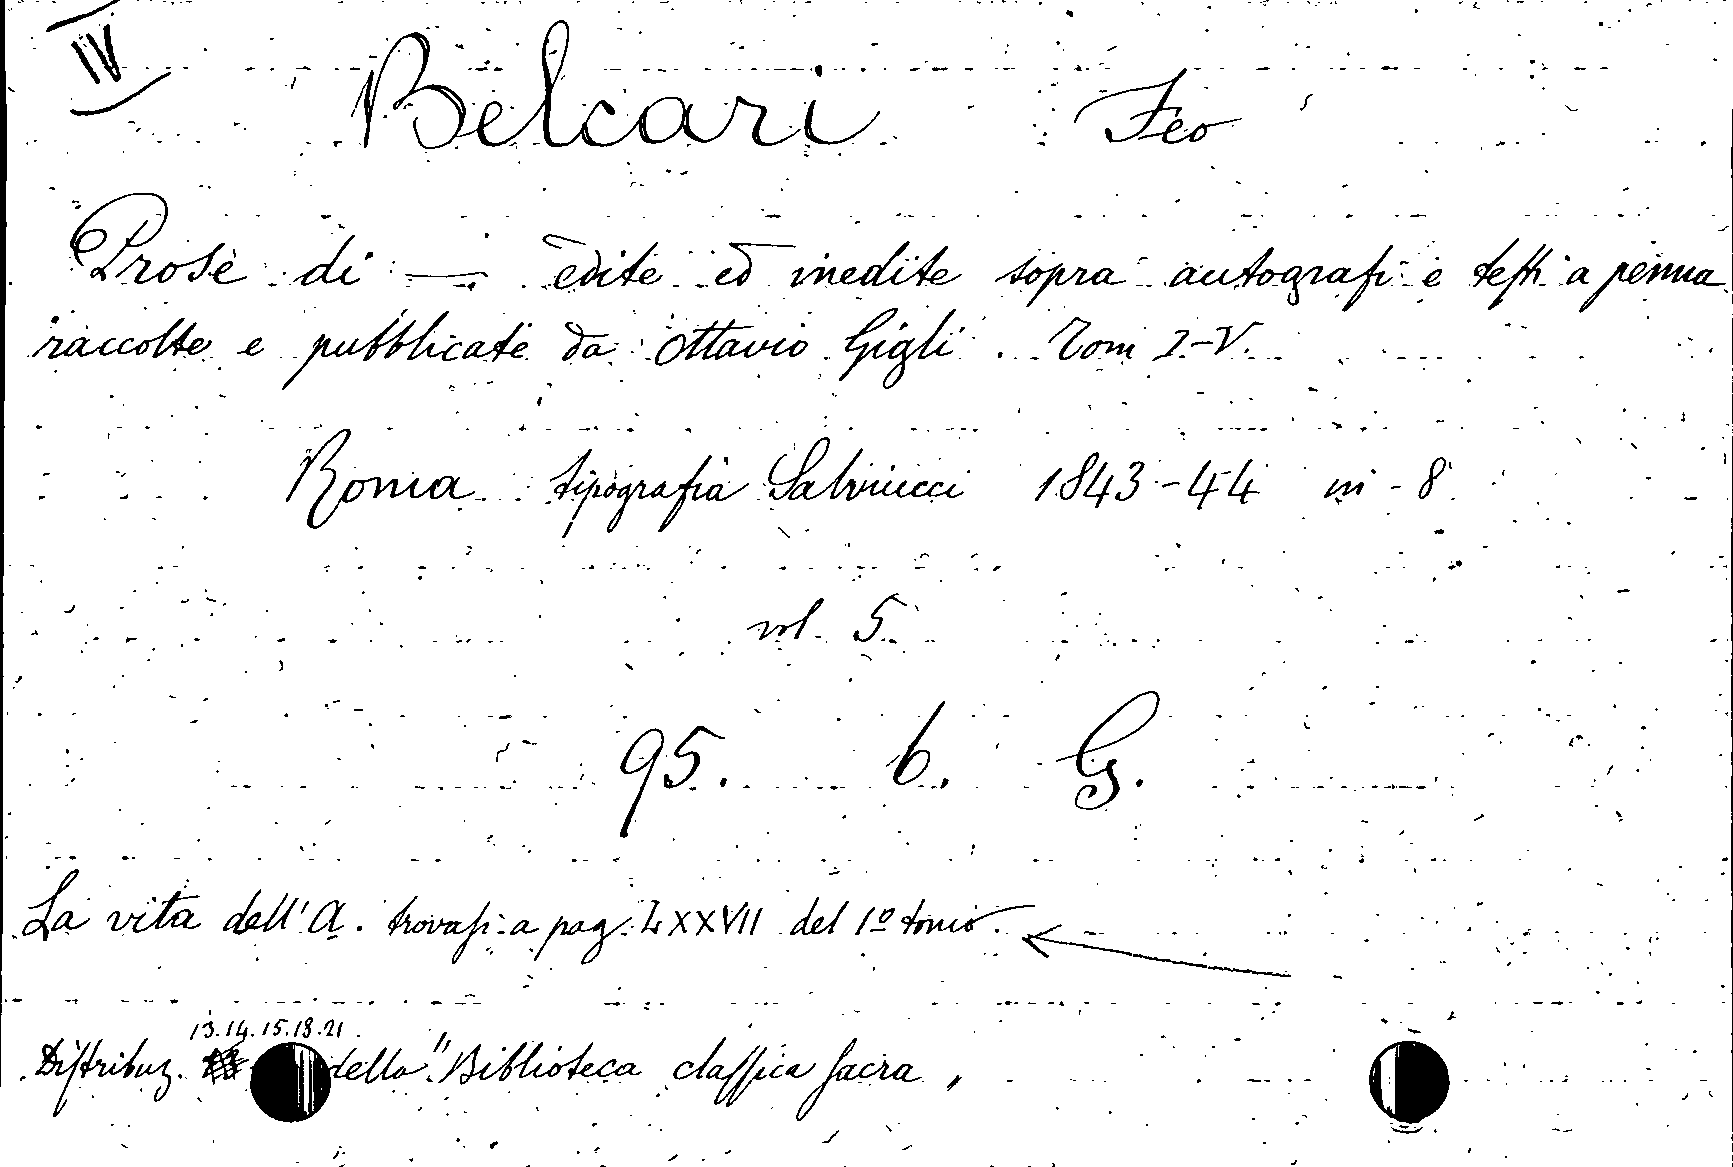 IV
Belcari Feo
Prose di — edite ed inedite sopra autografi e testi a penna
raccolte e pubblicate da Ottavio Gigli. Tomi I-V.
Roma tipografia Salviucci 1843-44 in-8
vol. 5
95. b. G.
La vita dell'A. trovasi a pag. LXXVII del 1º tomo.
13.14.15.18.21.
Distribuz. della "Biblioteca classica sacra"